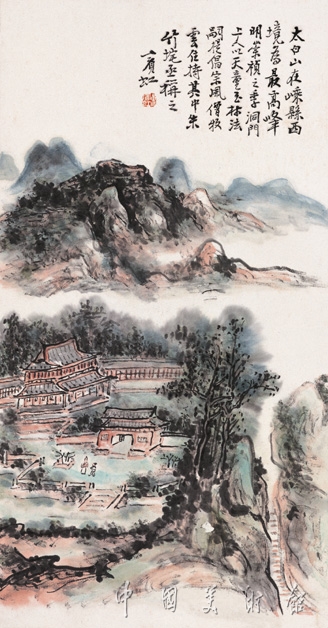 太白山在嵊縣西
境為最高峰
明崇禎之季洞門
上人以天童玉林法
嗣提倡宗風僧牧
雲住持其中朱
竹垞亟稱之
賓虹
中國美術館